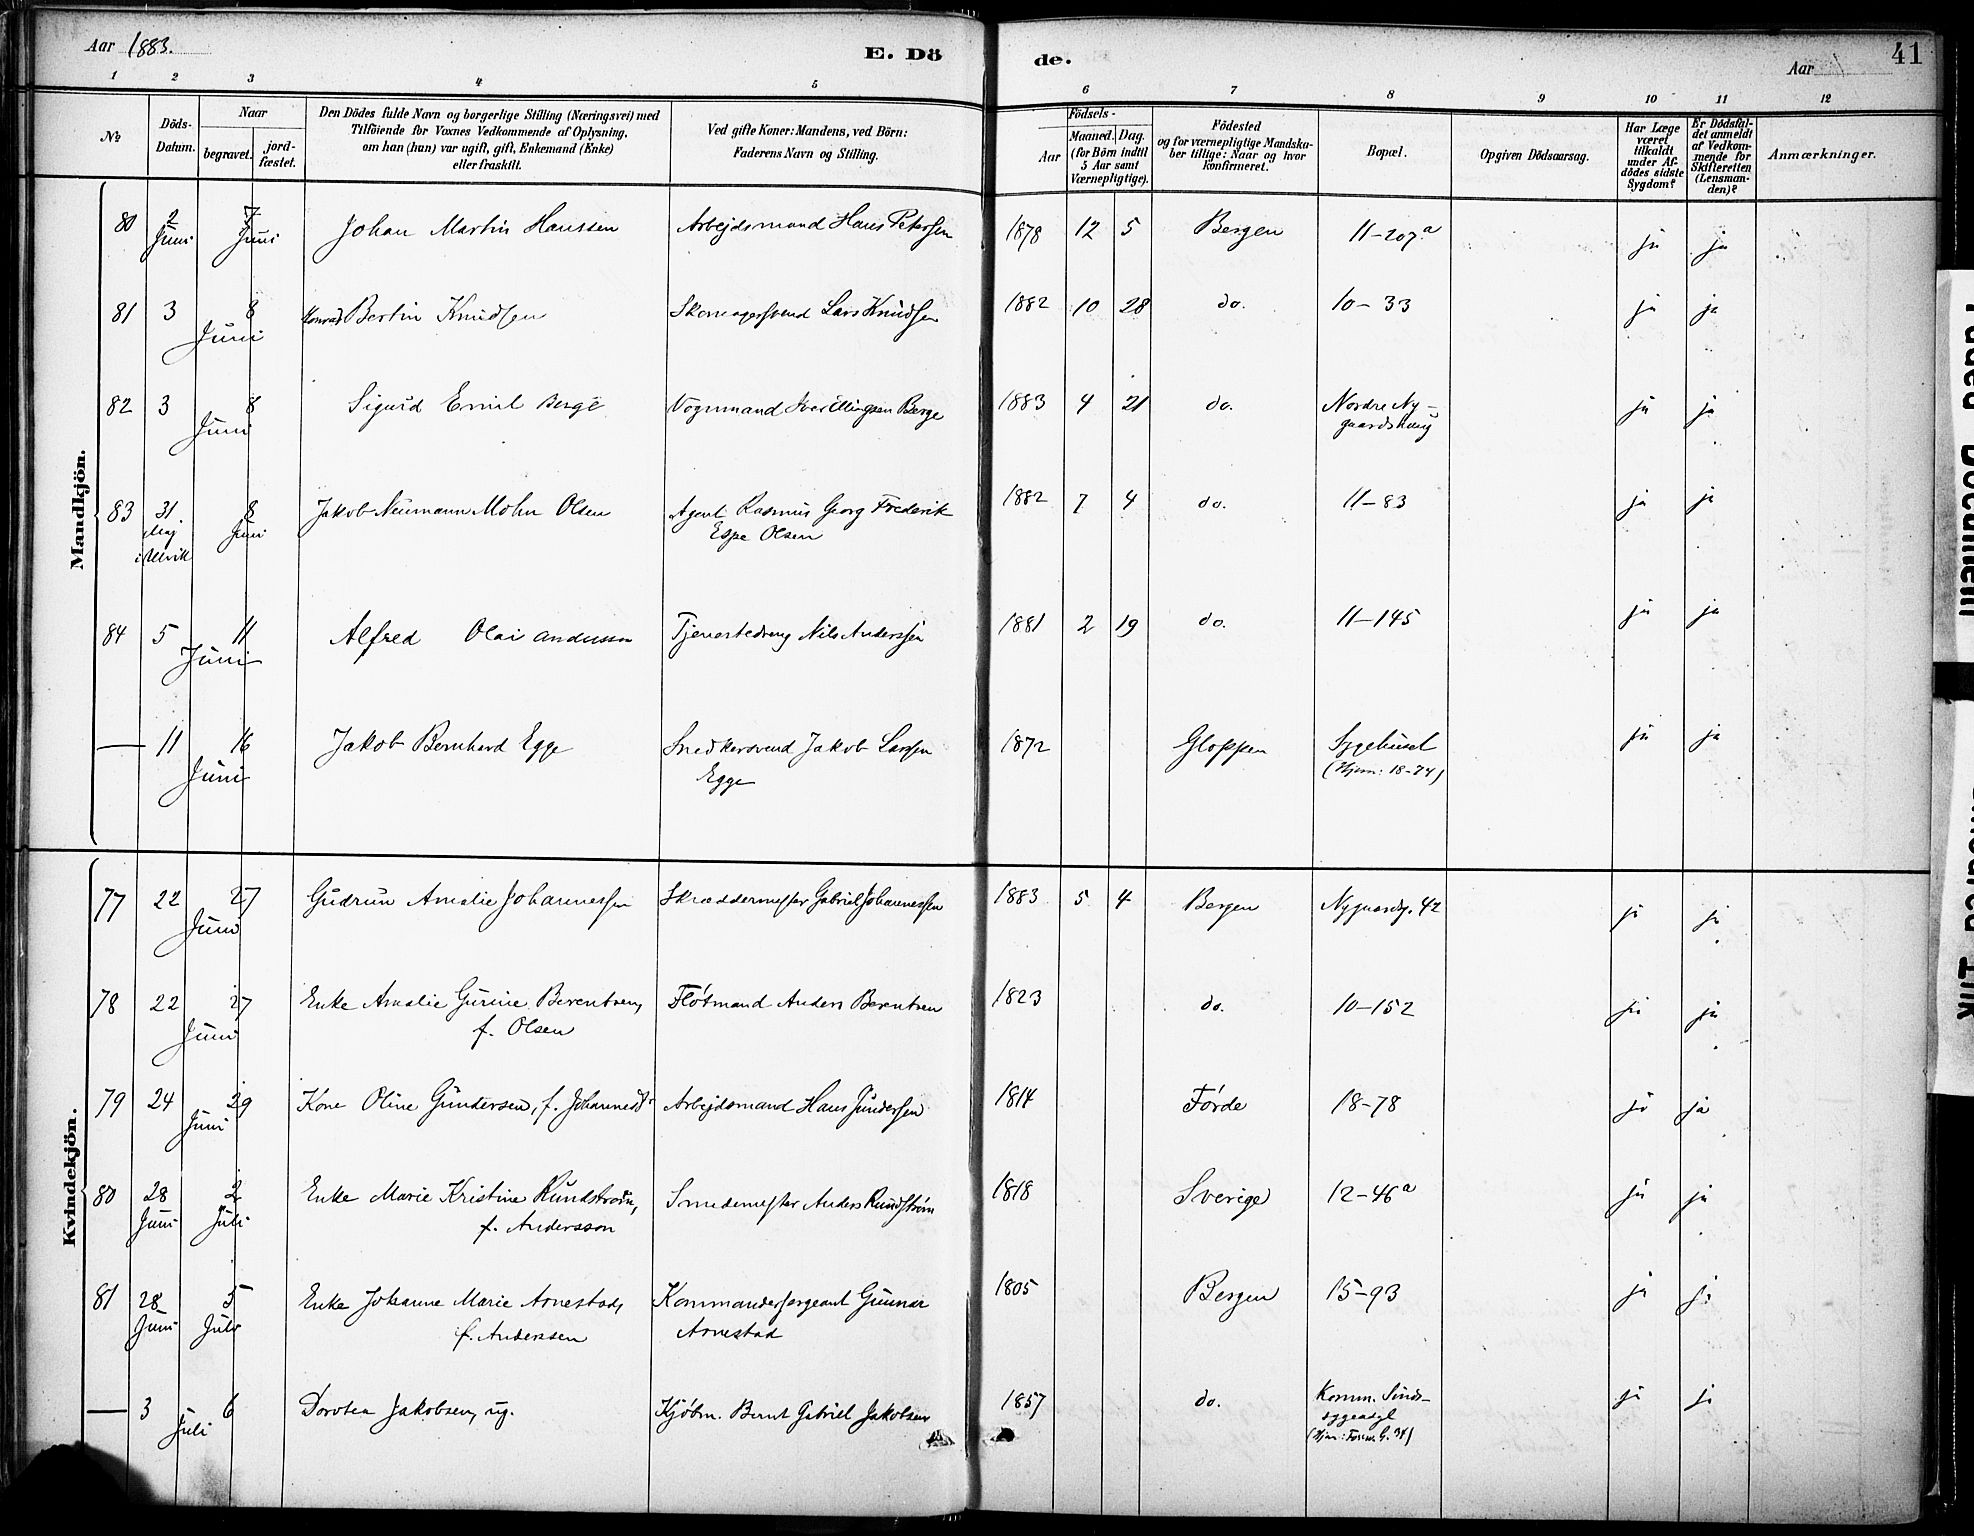 Aar 1883.
E. Dö
de.
Aar
41
1 2 3 4 5 6 7 8 9 10 11 12
No.
Döds-
Datum.
Naar
begravet.
jord-
fæstet.
Den Dödes fulde Navn og borgerlige Stilling (Næringsvei) med
Tilföiende for Voxnes Vedkommende af Oplysning,
om han (hun) var ugift, gift, Enkemand (Enke)
eller fraskilt.
Ved gifte Koner: Mandens, ved Börn:
Faderens Navn og Stilling.
Födsels-
Aar
Maaned. Dag.
(for Börn indtil
5 Aar samt
Værnepligtige).
Födested
og for værnepligtige Mandska-
ber tillige: Naar og hvor
konfirmeret.
Bopæl.
Opgiven Dödsaarsag.
Har Læge
været
tilkaldt
under Af-
dödes sidste
Sygdom?
Er Dödsfal-
det anmeldt
af Vedkom-
mende for
Skifteretten
(Lensman-
den)?
Anmærkninger.
Mandkjön.
80 2 Juni 7 Juni Johan Martin Hanssen Arbejdsmand Hans Peterssen 1878 12 5 Bergen 11-207a ja ja
81 3 8 Juni Konrad Bertin Knudssen Skomagersvend Lars Knudssen 1882 10 28 do. 10-33 ja ja
82 3 8 Juni Sigurd Emil Berge Vognmand Iver Ellingsen Berge 1883 4 21 do. Nordre Ny-
gaardshaug ja ja
83 31 Maj i Ulvik 8 Juni Jakob Neumann Mohn Olsen Agent Rasmus Georg Frederik
Espe Olsen 1882 7 4 do. 11-83 ja ja
84 5 11 Juni Alfred Olai Anderssen Tjenestedreng Nils Anderssen 1881 2 19 do. 11-145 ja ja
— 11 16 Juni Jakob Bernhard Egge Snedkersvend Jakob Larssen
Egge 1872 Gloppen Sygehuset
(Hjem: 18-74) ja ja
Kvindekjön.
77 22 27 Juni Gudrun Amalie Johannessen Skræddermester Gabriel Johannessen 1883 5 4 Bergen Nygaardsg. 42 ja ja
78 22 27 Juni Enke Amalie Gurine Berentsen,
f. Olsen Fløtmand Anders Berentsen 1823 do. 10-152 ja ja
79 24 29 Juni Kone Oline Gundersen, f. Johannesdr. Arbejdsmand Hans Gunderssen 1814 Førde 18-78 ja ja
80 28 Juni 2 Juli Enke Marie Kristine Rundstrøm,
f. Andersson Smedemester Anders Rundstrøm 1818 Sverige 12-46a ja ja
81 28 Juni 5 Juli Enke Johanne Marie Arnestad,
f. Anderssen Kommandersergeant Gunnar
Arnestad 1805 Bergen 15-93 ja ja
— 3 6 Juli Dorotea Jakobsen, ug. Kjøbm. Bernt Gabriel Jakobsen 1857 do. Komm. Sinds-
sygeasyl
(Hjem: G. 34) ja ja